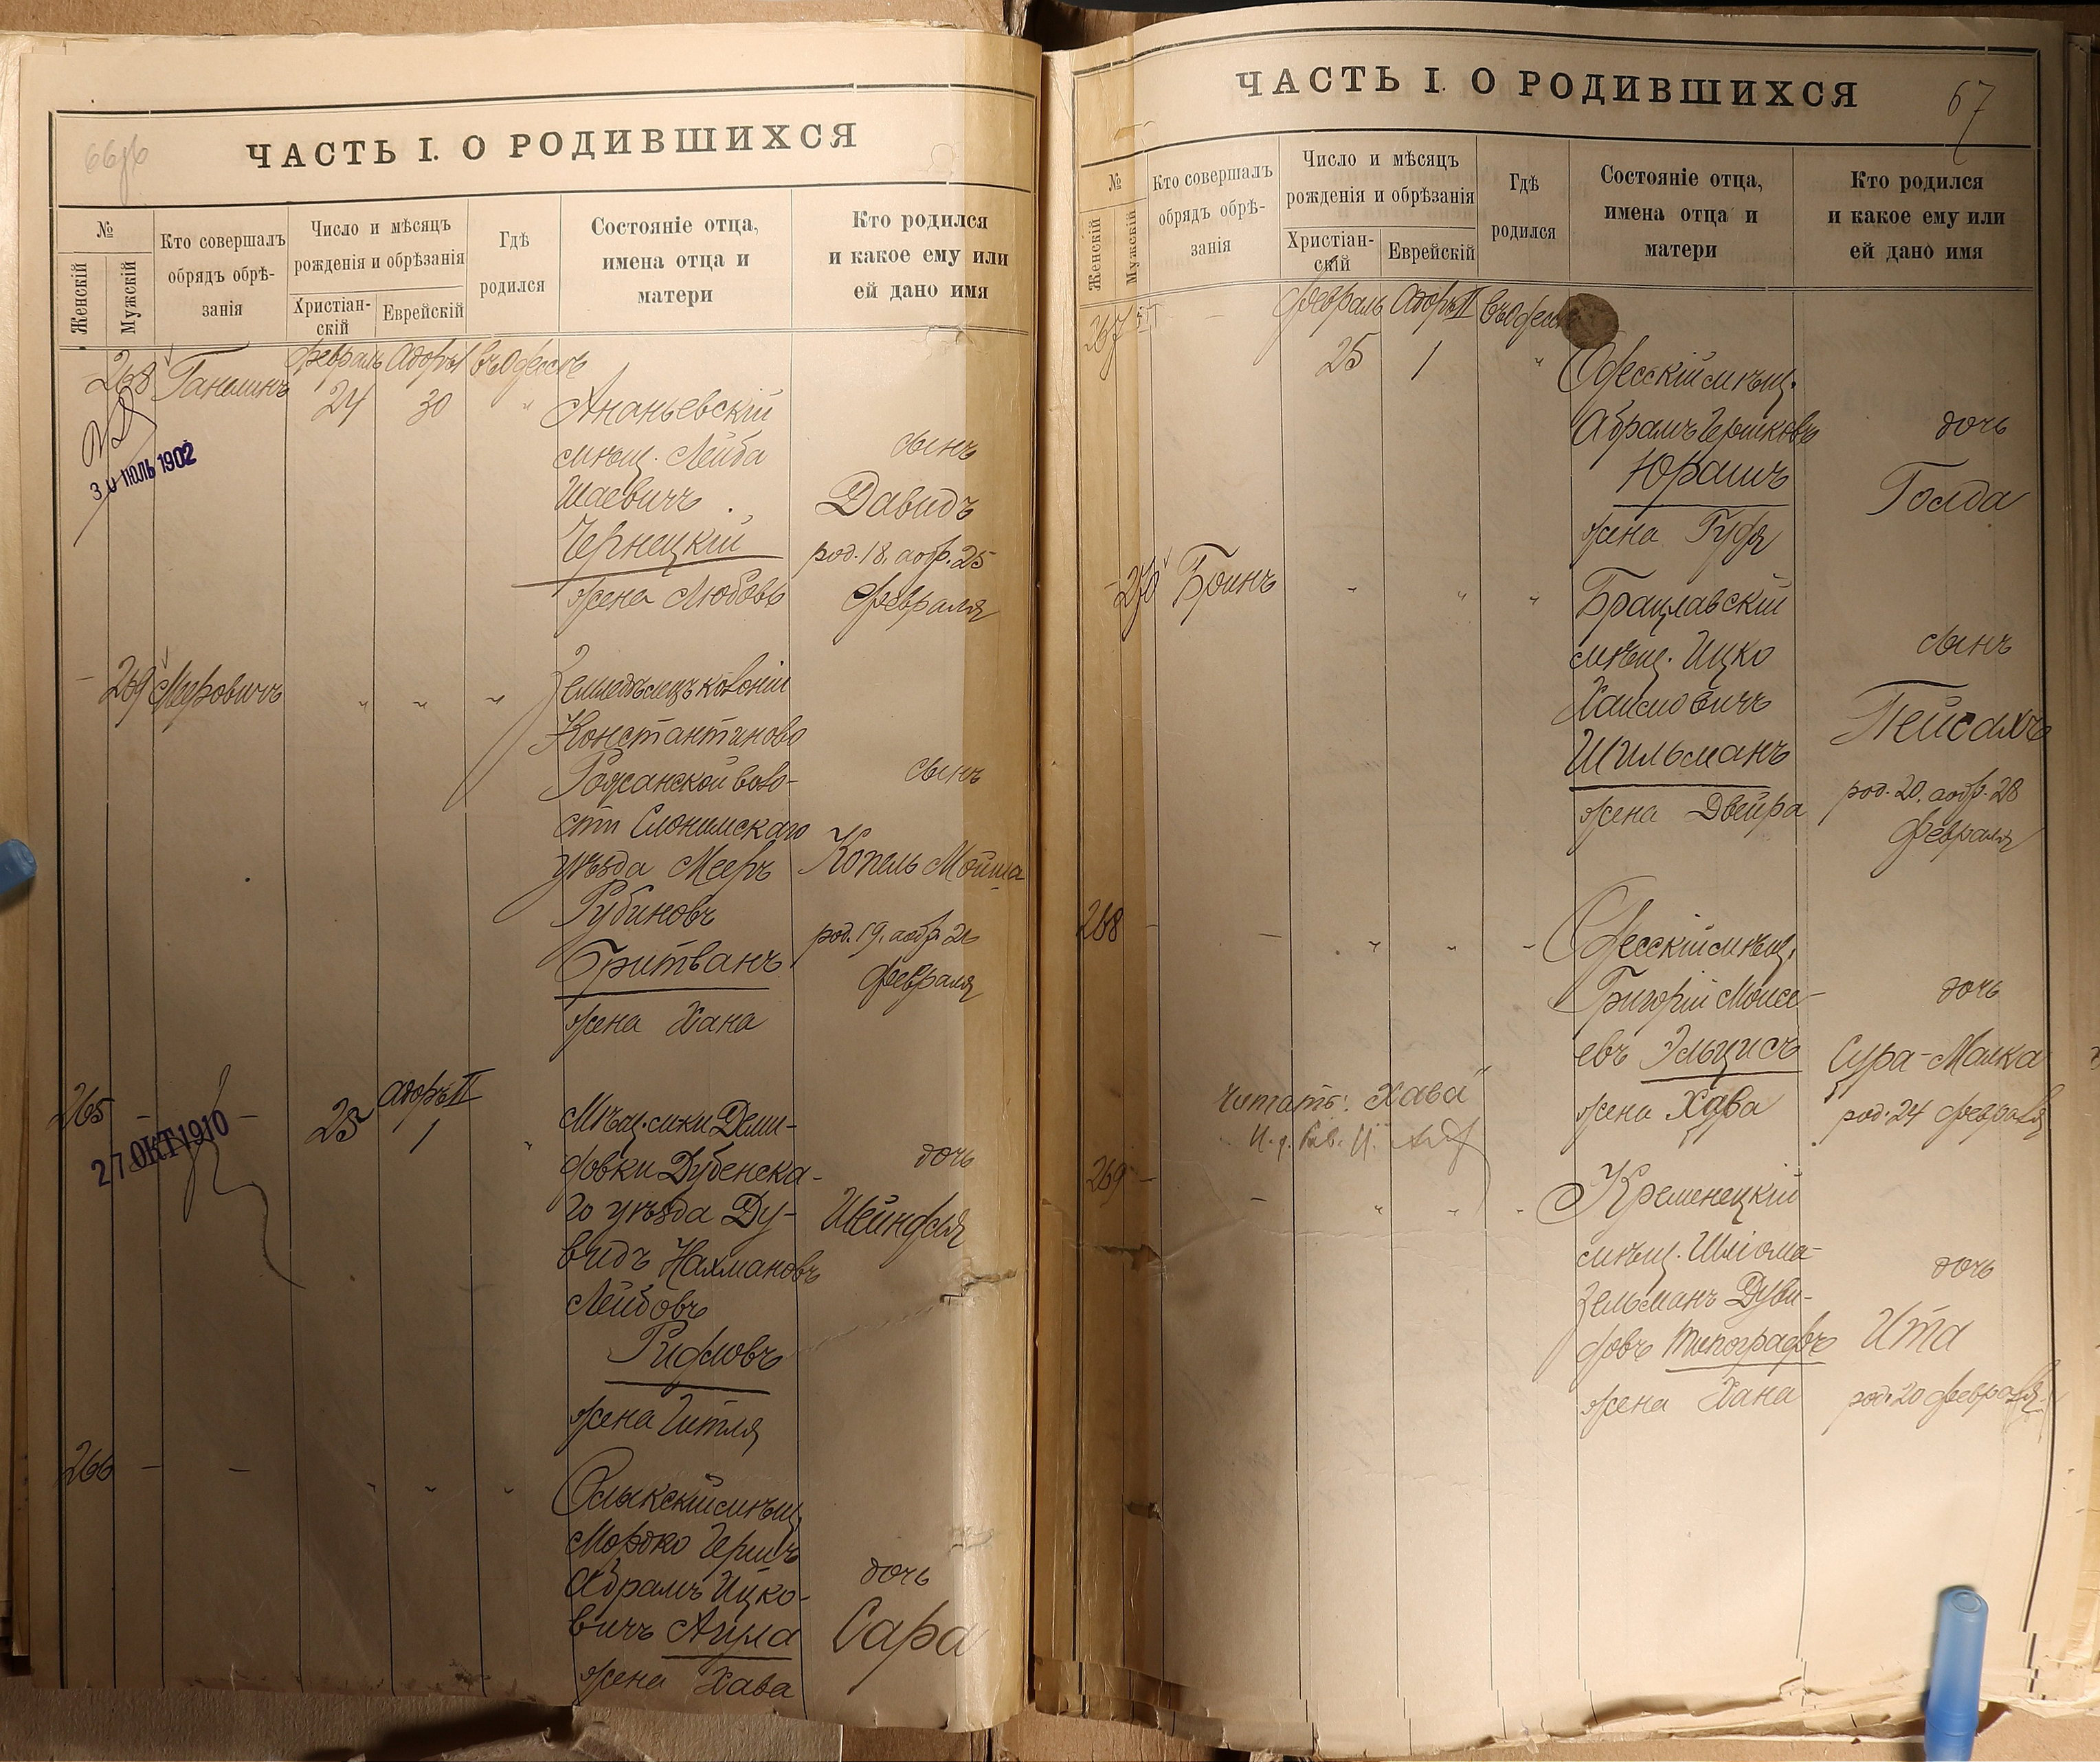 ЧАСТЬ I. О РОДИВШИХСЯ
№
Женскій
Мужскій
Кто совершалъ
обрядъ обрѣ-
занія
Число и мѣсяцъ
рожденія и обрѣзанія
Христіан-
скій
Еврейскій
Гдѣ
родился
Состояніе отца,
имена отца и
матери
Кто родился
и какое ему или
ей дано имя
268
февраль Адоръ I въ Одессѣ
24 30 "
30 ИЮЛЬ 1902
Ананьевскій
мѣщ. Лейба
Шаевичъ
Чернецкій
жена Любовь
сынъ
Давидъ
род. 18, а обр. 25
февраля
- 269 Меровичъ " " "
Земледѣлецъ колоніи
Константиново
Рожанской воло-
сти Слонимскаго
уѣзда Мееръ
Рубиновъ
Бритванъ
жена Хана
сынъ
Копель Мойша
род. 19, а обр. 26
февраля
265 - -
27 ОКТ 1910
25
Адоръ II
1
"
Мѣщ. м-ки Деми-
довки Дубенска-
го уѣзда Ду-
видъ Нахмановъ
Лейбовъ
жена Гитля
дочь
Шейндля
266 - - " " "
Олыкскій мѣщ.
Мордко Гершъ
Абрамъ Ицко-
вичъ
жена Хава
дочь
Сара
ЧАСТЬ I. О РОДИВШИХСЯ
67
№
Женскій
Мужскій
Кто совершалъ
обрядъ обрѣ-
занія
Число и мѣсяцъ
рожденія и обрѣзанія
Христіан-
скій
Еврейскій
Гдѣ
родился
Состояніе отца,
имена отца и
матери
Кто родился
и какое ему или
ей дано имя
267
февраль Адоръ II въ Одессѣ
25 1 "
Одесскій мѣщ.
Абрамъ Гершковъ
Юрашъ
жена
дочь
Голда
- 270 Боинъ " " "
Брацлавскій
мѣщ. Ицко
Хаимовичъ
Шильманъ
жена Двейра
сынъ
Пейсахъ
род. 20, а обр. 28
февраля
268 - - " " "
Одесскій мѣщ.
Григорій Моисе-
евъ Эльцисъ
жена Хава
дочь
Сура-Малка
род. 24 февраля
читать: "Хава"
И. д. Рав.
269 - - " " "
Кременецкій
мѣщ. Шліома-
Зельманъ Дуви-
довъ Типографъ
жена Хана
дочь
Ита
род. 20 февраля